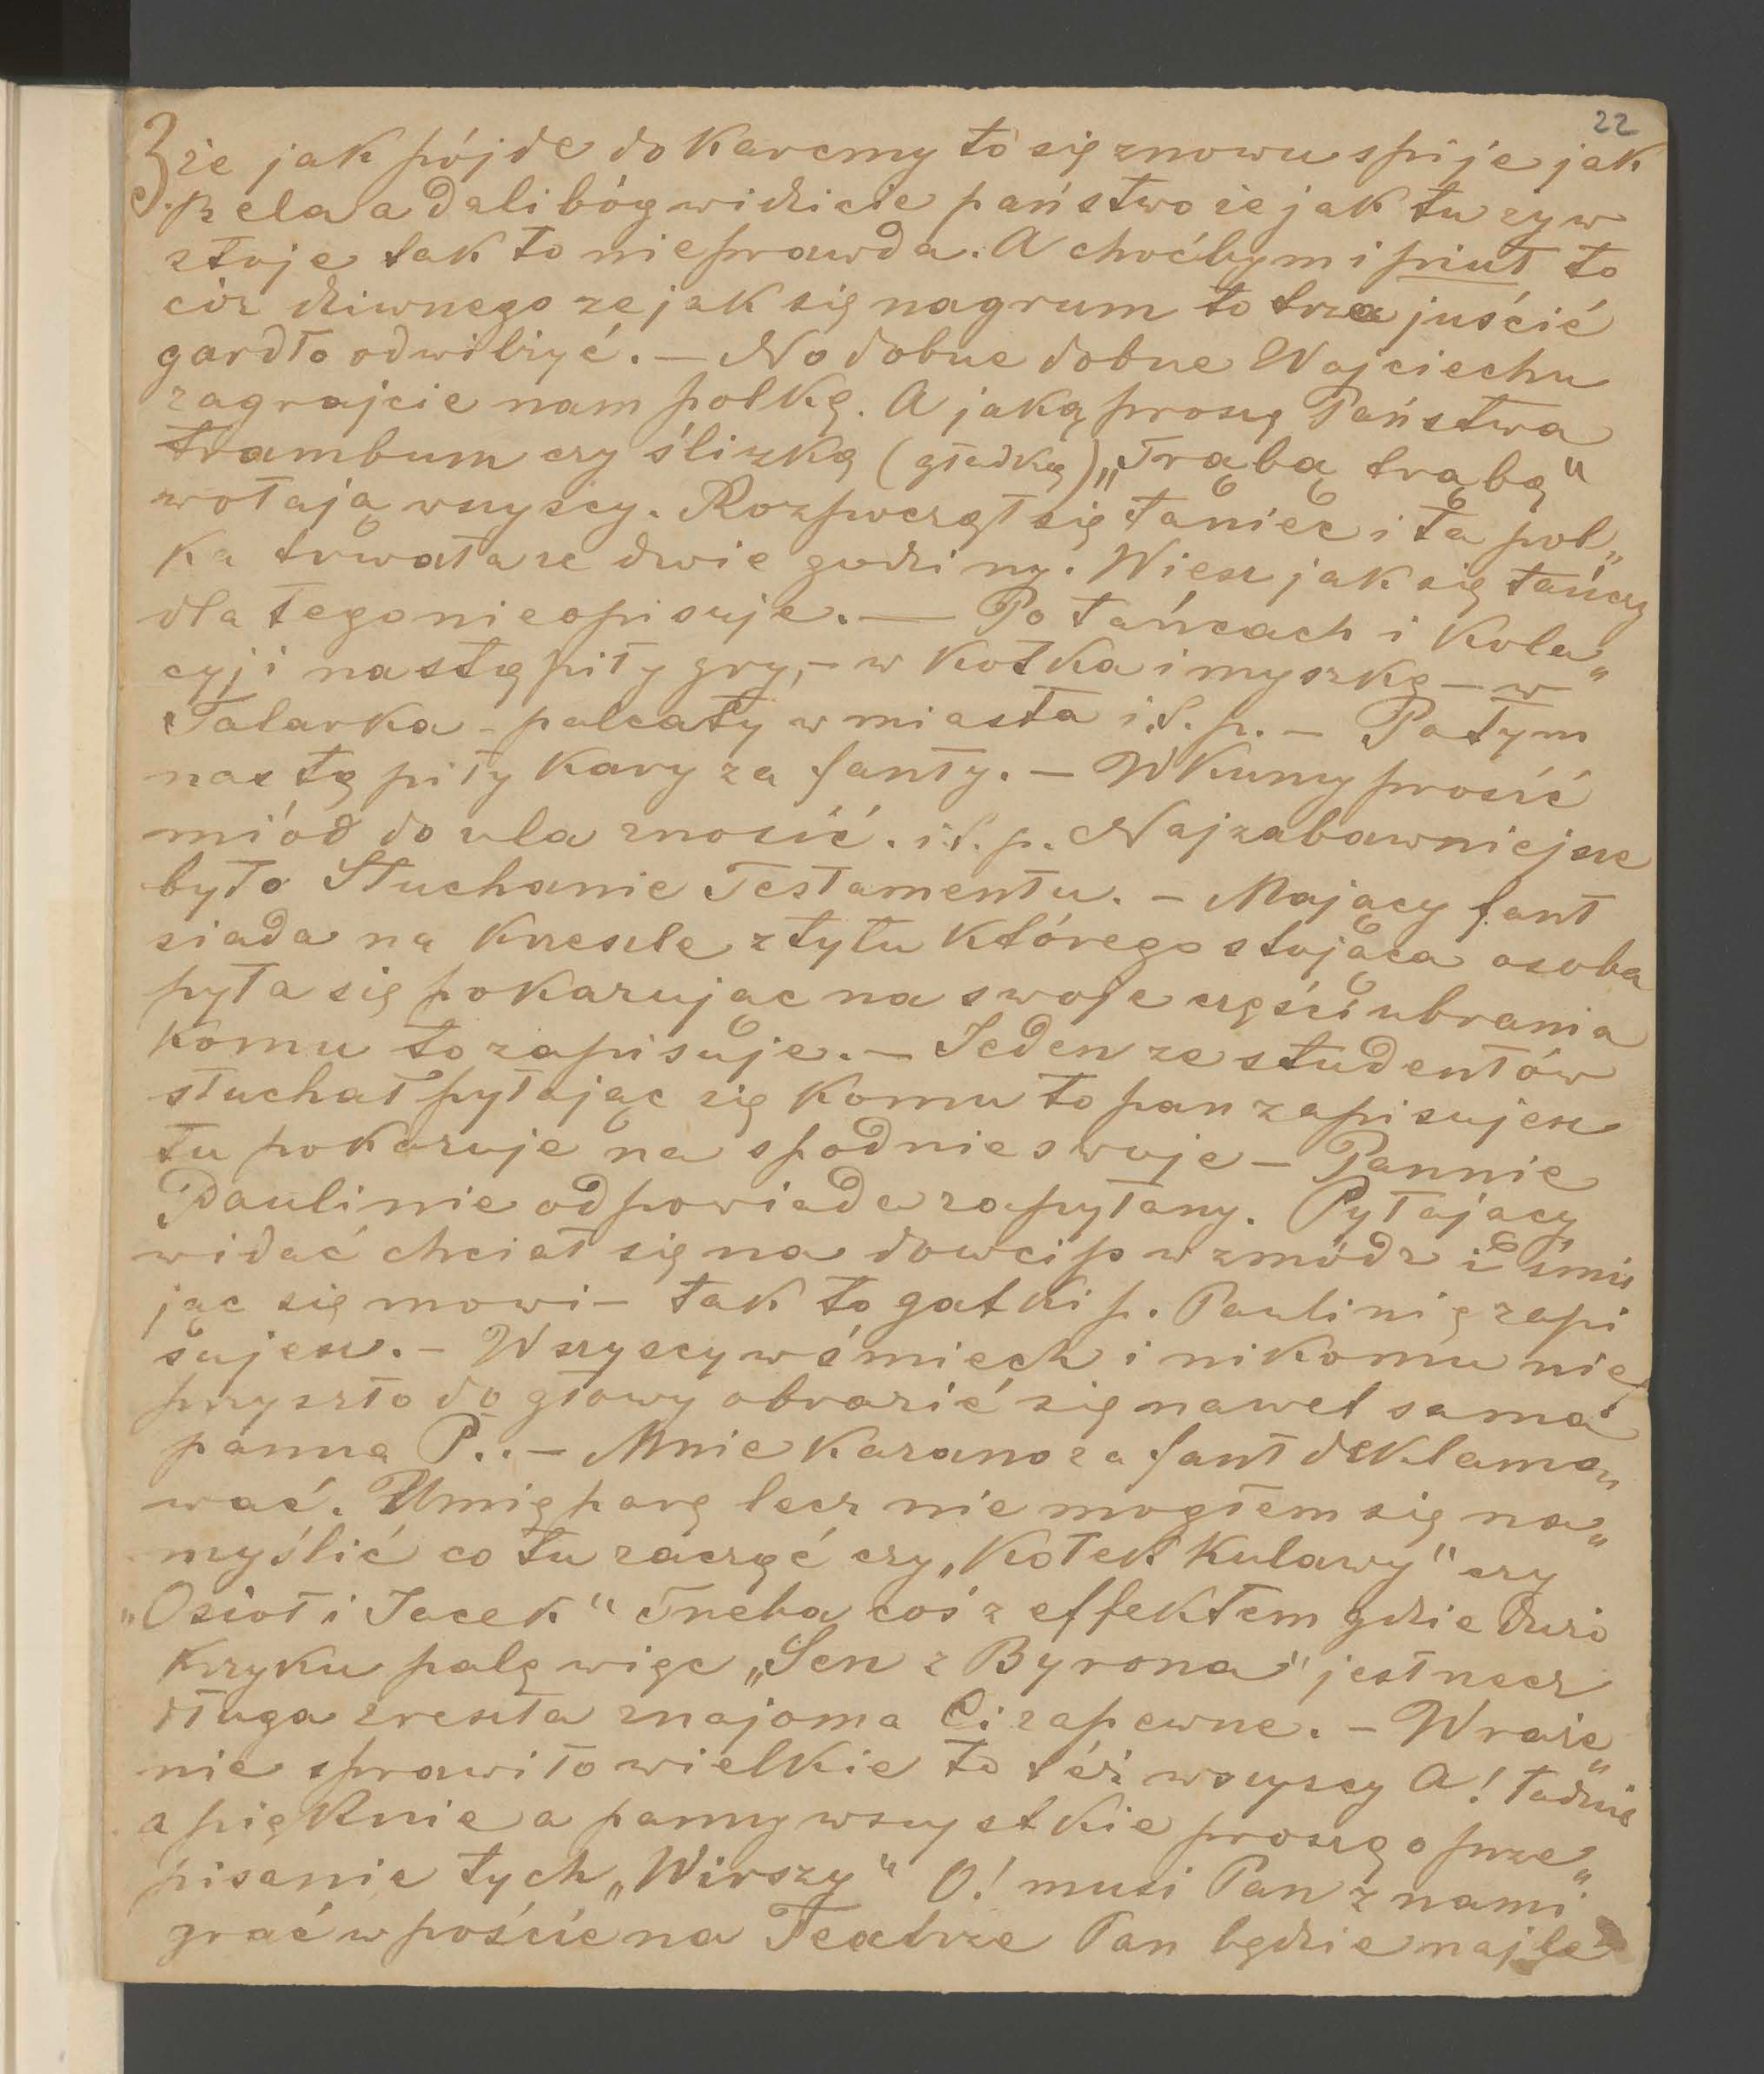 22
3 że jak pójde do Karcmy to się znowu spije jak
.pzela a dalibóg widzicie państwo że jak tu zyw
stoje tak to nieprawda. A choćbym i piuł to
cóz dziwnego ze jak się nagrum to trza juścić
gardło odwilżyć. — No dobrze dobrze Wojciechu
zagrajcie nam polkę. A jaką proszę Państwa
trambum czy ślizką (gładką) „Trąbą trąbą“
wołają wszyscy. Rozpoczął się taniec i ta pol„
ka trwała ze dwie godziny. Wiesz jak się tańczy
dla tego nieopisuje. — Po tańcach i Kola„
cyji nastąpiły gry, – w Kotka i myszkę – w
Talarka – palcaty w miasta i.t.p. – Potym
nastąpiły Kary za fanty. – W Kumy prosić
miód do ula znosić. i.t.p. Najzabawniejsze
było Słuchanie Testamentu. – Mający fant
siada na Krześle z tyłu którego stojąca osoba
pyta się pokazując na swoje części ubrania
Komu to zapisuje. – Jeden ze studentów
słuchał pytając się Komu to pan zapisujesz
tu pokazuje na spodnie swoje – Pannie
Paulinie odpowiada zapytany. Pytający
widać chciał się na dowcip wzmódz i śmie
jąc się mowi – tak to gatki p. Paulinię zapi
sujesz. – Wszyscy w śmiech i nikomu nie
przyszło do głowy obrazić się nawet sama
panna P.. – Mnie Kazano za fant deklamo„
wać. Umię parę lecz nie mogłem się na„
myślić co tu zacząć czy „Kotek Kulawy“ czy
„Osioł i Jacek“ Trzeba coś z effektem gdzie dużo
Krzyku palę więc „Sen z Byrona“ jest rzecz
długa zresztą znajoma Ci zapewne. – Wraże„
nie sprawiło wielkie to téż wszyscy A! ładnie
a pięknie a panny wszystkie proszą o prze„
pisanie tych „Wirszy“ O! musi Pan z nami
grać w poście na Teatrze Pan będzie najle